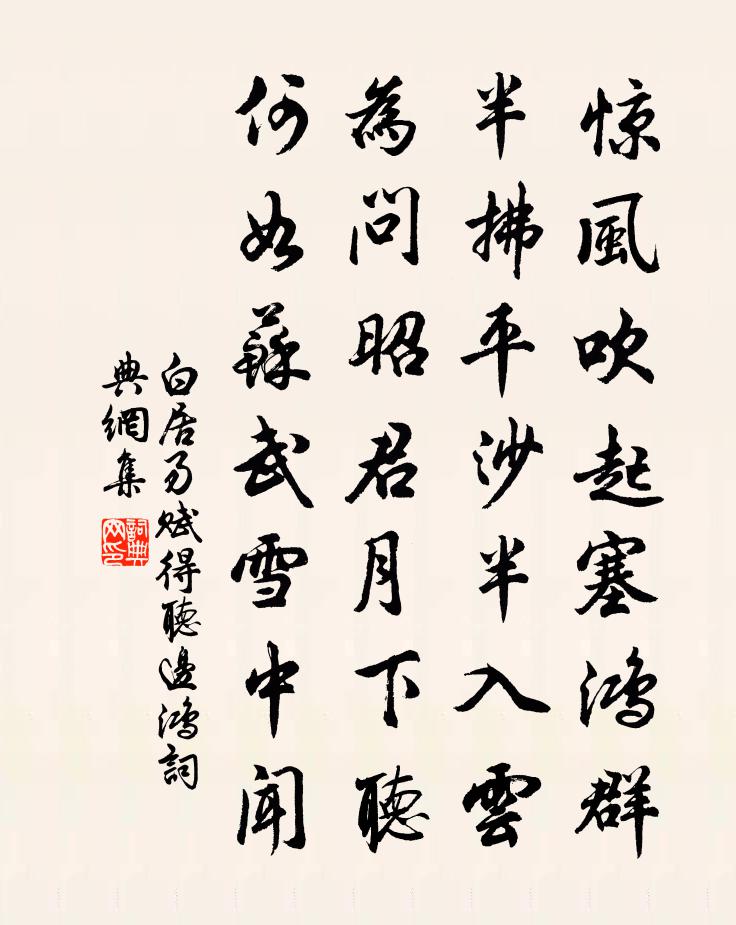 惊風吹起塞鴻群
半拂平沙半入雲
為問昭君月下聽
何如蘇武雪中聞
白居易賦得聽邊鴻詞
典網集
詞典网印